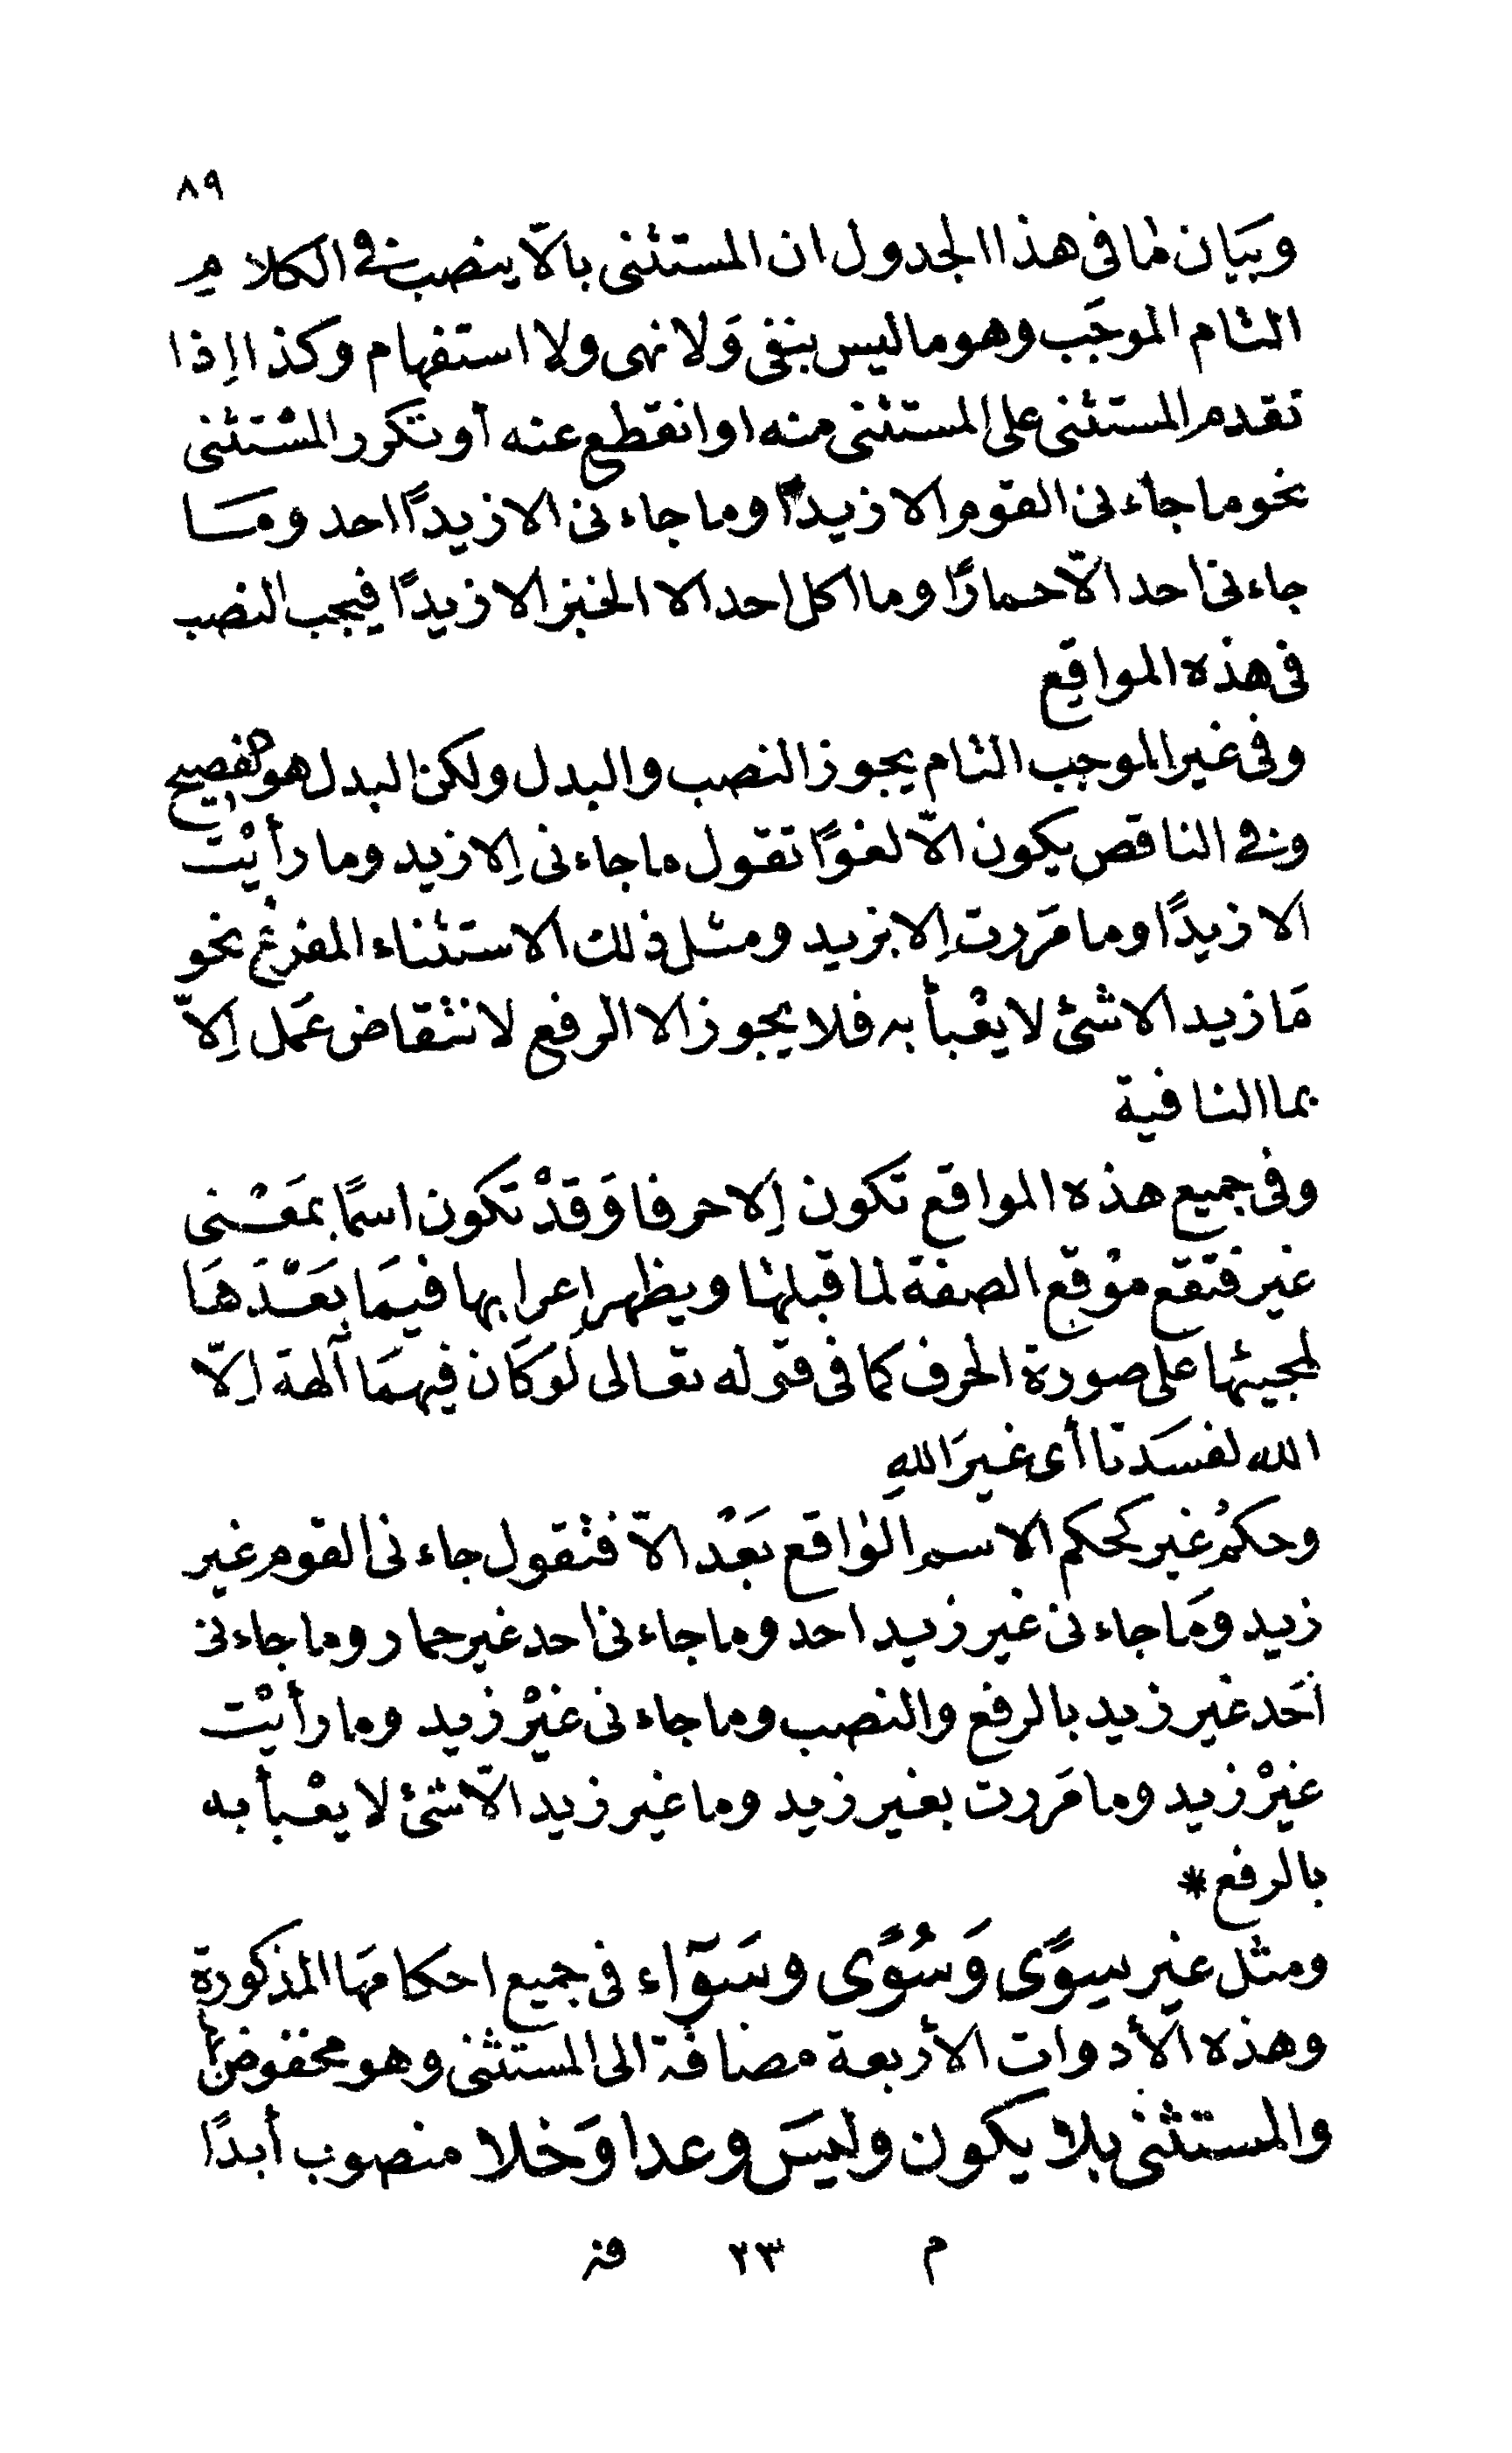 ٨٩
وبَيَان لما فى هذا الجدول ان المستثنى بالّا ينصب فى الكلام
التام الموجَب وهو ما ليس بنفى وَلا نهى ولا استفهام وكذا اِذا
تقدم المستثنى على المستثنى منه او انقطع عنه أو تكرر المستثنى
نحو ما جاء نى القوم الا زيدًا وما جاء نى الا زيدًا احد ومَا
جاء نى احد الّا حمارًا وما اكل احد الا الخبز الا زيدًا فيجب النصب
فى هذه المواقع
وفى غير الموجب التام يجوز النصب والبدل ولكن البدل هو الفصيح
وفى الناقص يكون الّا لغوًا تقول ما جاء نى اِلا زيد وما رأيْت
الا زيدًا وما مَررت اِلا بزيد ومثل ذلك الاستثناء المفرغ نحو
مَا زيد الا شئ لا يعْبأ به فلا يجوز الا الرفع لانتقاض عَمل اِلّا
بما النافية
وفى جميع هذه المواقع تكون اِلا حرفا وَقدْ تكون اسمًا بمَعْنى
غير فتقع موْقع الصفة لما قبلها ويظهر اِعرابها فيمَا بَعْدَهَا
لمجيئها على صورة الحرف كما فى قوله تعالى لَوكَان فيهمَا آلهة اِلّا
الله لفسَدتا أى غيرَ اللهِ
وحكمُ غير كحكم الاسم الواقع بَعْد الّا فتْقول جاء نى القوم غير
زيد ومَا جاء نى غير زيد احد وما جاء نى احد غير حمار وما جاء نى
أحَد غير زيد بالرفع والنصب وما جاء نى غيْر زيد وما رأيْت
غيْر زيد وما مَررت بغير زيد وما غير زيد الّا شئ لا يعْبأ به
بالرفع *
ومثل غير سِوًى وَسُوًى وسَوَآء فى جميع احكامهَا المذكورة
وهذه الأدوات الأربعة مضافة الى المستثنى وهو مخفوض
والمستثنى بلا يكون وليسَ وعدا وَخلا منصوب أبدًا
م ٢٣ فر